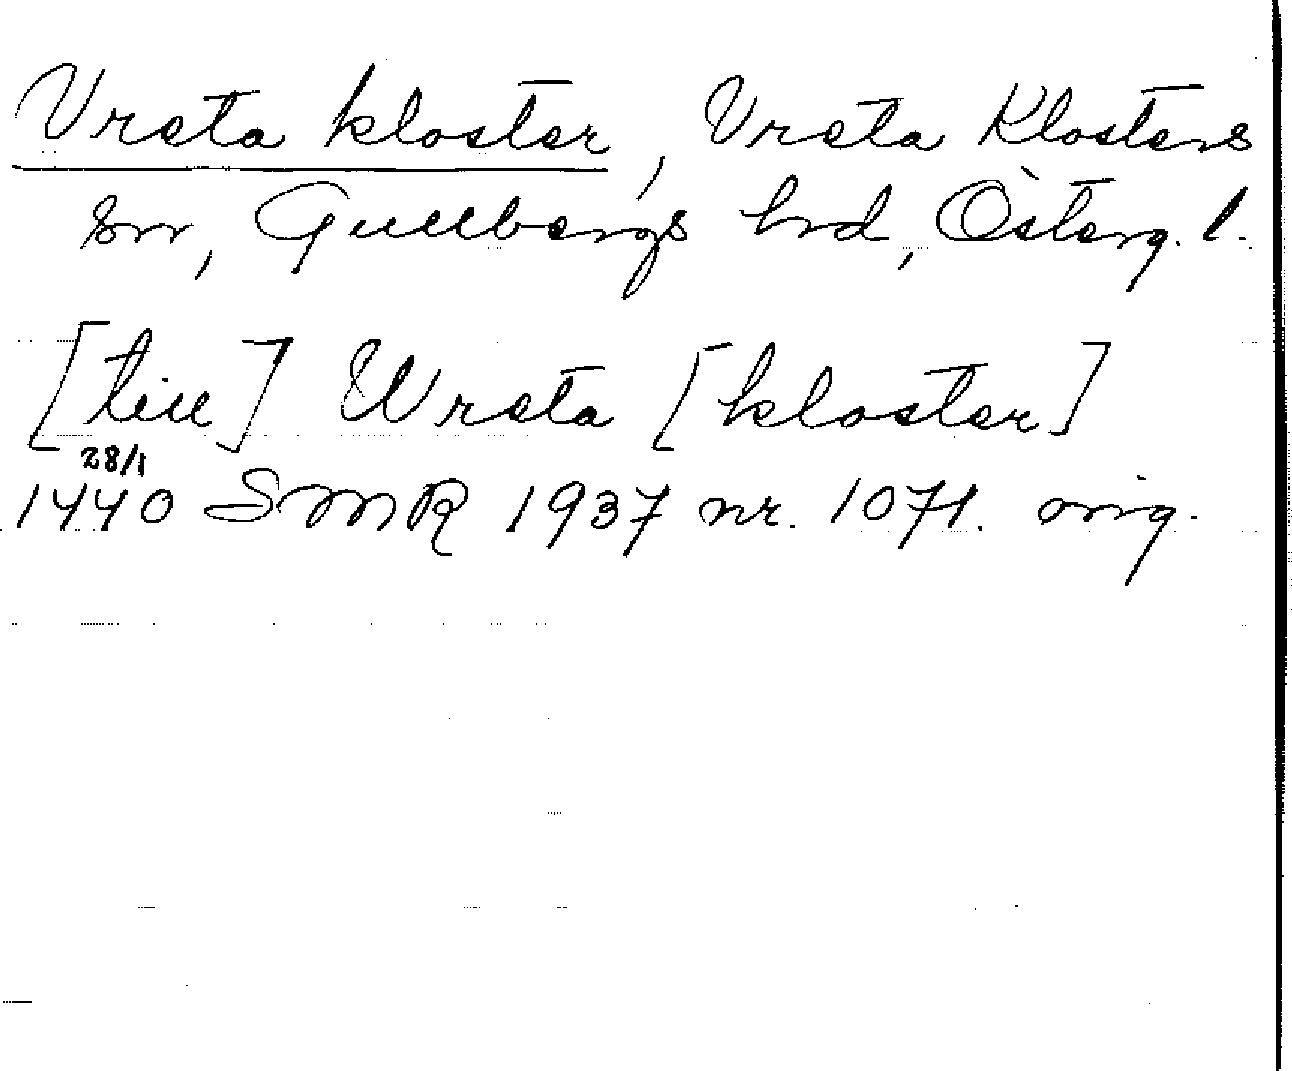 Vreta kloster, Vreta Klosters
sn, Gullbergs hrd, Österg. l.
[till] Wreta [kloster]
28/1
1440 SMR 1937 nr. 1071. orig.